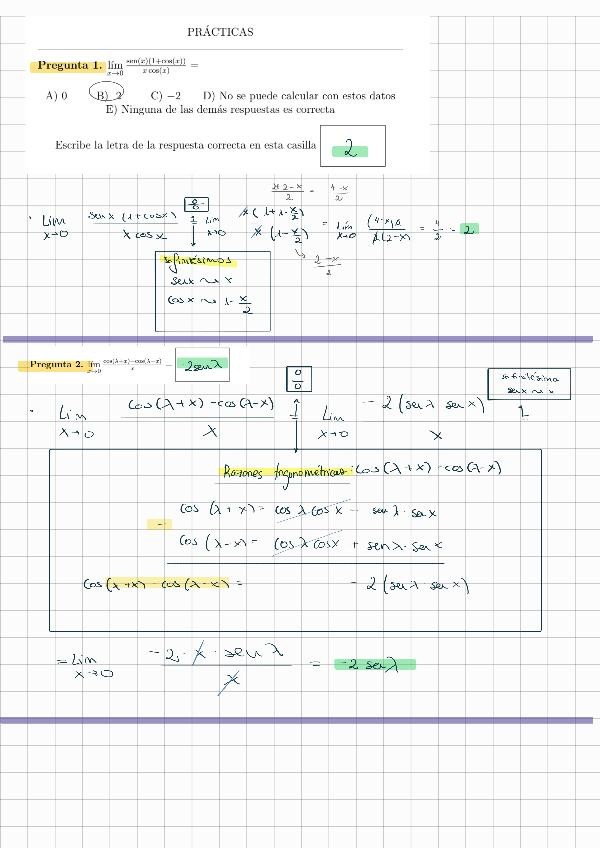 PRÁCTICAS
Pregunta 1. lím x→0 sen(x)(1+cos(x)) / x cos(x) =
A) 0 B) 2 C) −2 D) No se puede calcular con estos datos
E) Ninguna de las demás respuestas es correcta
Escribe la letra de la respuesta correcta en esta casilla 2
Lim x→0 senx (1+cosx) / x cosx = 0/0 Lim x→0 x (1+1-x/2) / x (1-x/2) = Lim x→0 (4-x)2 / 2(2-x) = 4/2 = 2
4-x / 2
2-x / 2
infinitésimos
senx ~ x
cosx ~ 1-x/2
Pregunta 2. lím x→0 cos(λ+x)−cos(λ−x) / x = 2senλ
0/0
infinitésimo
senx ~ x
Lim x→0 cos(λ+x)-cos(λ-x) / x = Lim x→0 -2(senλ senx) / x =
Razones trigonométricas: cos(λ+x)-cos(λ-x)
cos (λ+x) = cosλ·cosx - senλ·senx
-
cos (λ-x) = cosλ·cosx + senλ·senx
cos(λ+x) - cos(λ-x) = -2(senλ senx)
= Lim x→0 -2·x·senλ / x = -2 senλ